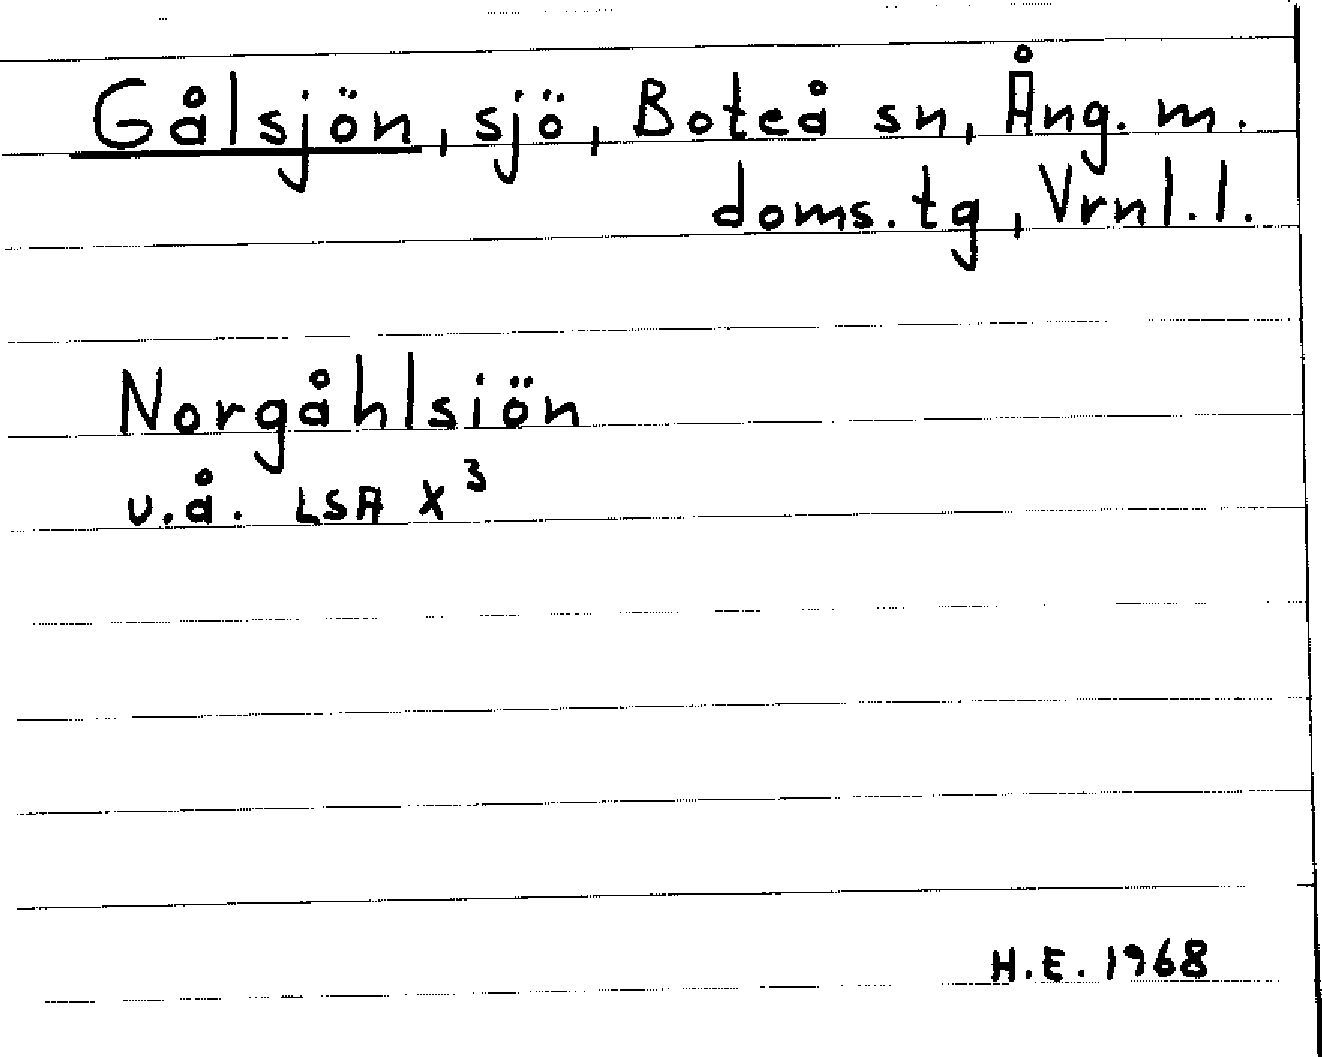 Gålsjön, sjö, Boteå sn, Ång. m.
doms.tg, Vrnl.l.
Norgåhlsiön
u.å. LSA X³
H.E. 1968